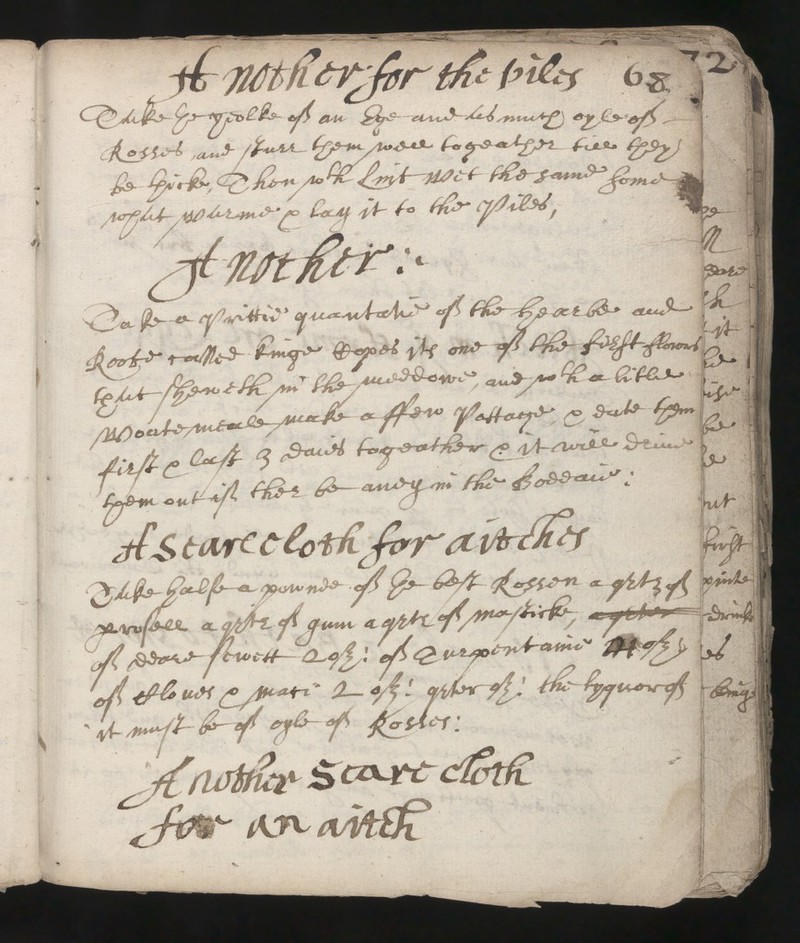 Another for the piles 68
72
Take ye yeolke off an Ege and as much oyle off
Rosses and sturr them well togeather till they
be thicke, Then wth Lint wet the same some
what warme & lay it to the Piles,
Another:
Take a Prittie quantatie off the hearbe and
Roote called kinge Copes its one off the first flowrs
that sheweth in the meddowe, and wth a little
Woatemeale make a ffew Pottage, & eate them
first & last 3 daies togeather & it will drive
them out iff ther be aney in the Boddaie:
A Seare cloth for aitches
Take halfe a pownde off ye best Rossen a qrtr off
prosell a qrtr off gum a qrtr off masticke,
off deare sewett 2 oz: off Turpentaine oz
off Cloves & mace 2 oz: qrter oz: the lyquor off
it must be off oyle off Rosses:
Another Seare cloth
for an aitch